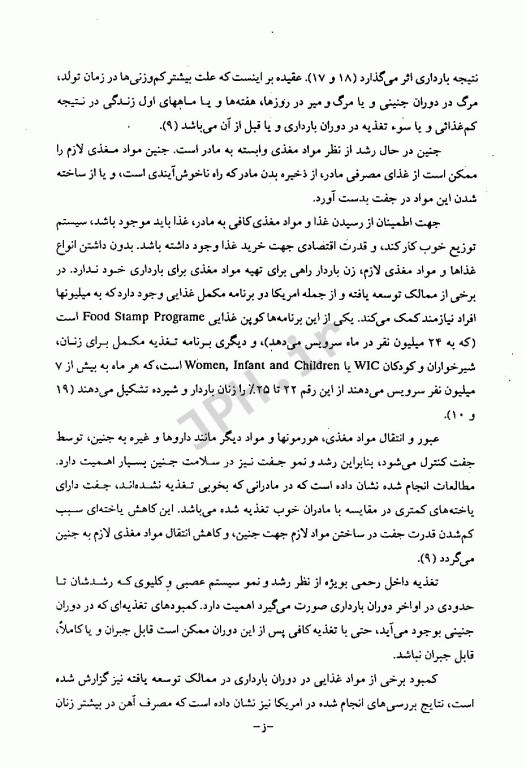 نتیجه بارداری اثر می‌گذارد (۱۸ و ۱۷). عقیده بر اینست که علت بیشتر کم‌وزنی‌ها در زمان تولد،
مرگ در دوران جنینی و یا مرگ و میر در روزها، هفته‌ها و یا ماههای اول زندگی در نتیجه
کم‌غذائی و یا سوء تغذیه در دوران بارداری و یا قبل از آن می‌باشد (۹).
جنین در حال رشد از نظر مواد مغذی وابسته به مادر است. جنین مواد مغذی لازم را
ممکن است از غذای مصرفی مادر، از ذخیره بدن مادر که راه ناخوش‌آیندی است، و یا از ساخته
شدن این مواد در جفت بدست آورد.
جهت اطمینان از رسیدن غذا و مواد مغذی کافی به مادر، غذا باید موجود باشد، سیستم
توزیع خوب کار کند، و قدرت اقتصادی جهت خرید غذا وجود داشته باشد. بدون داشتن انواع
غذاها و مواد مغذی لازم، زن باردار راهی برای تهیه مواد مغذی برای بارداری خود ندارد. در
برخی از ممالک توسعه یافته و از جمله امریکا دو برنامه مکمل غذایی وجود دارد که به میلیونها
افراد نیازمند کمک می‌کند. یکی از این برنامه‌ها کوپن غذایی Food Stamp Programe است
(که به ۲۴ میلیون نفر در ماه سرویس می‌دهد)، و دیگری برنامه تغذیه مکمل برای زنان،
شیرخواران و کودکان WIC یا Women, Infant and Children است، که هر ماه به بیش از ۷
میلیون نفر سرویس می‌دهند از این رقم ۲۲ تا ۲۵٪ را زنان باردار و شیرده تشکیل می‌دهند (۱۹
و ۱۰).
عبور و انتقال مواد مغذی، هورمونها و مواد دیگر مانند داروها و غیره به جنین، توسط
جفت کنترل می‌شود، بنابراین رشد و نمو جفت نیز در سلامت جنین بسیار اهمیت دارد.
مطالعات انجام شده نشان داده است که در مادرانی که بخوبی تغذیه نشده‌اند، جفت دارای
یاخته‌های کمتری در مقایسه با مادران خوب تغذیه شده می‌باشد. این کاهش یاخته‌ای سبب
کم‌شدن قدرت جفت در ساختن مواد لازم جهت جنین، و کاهش انتقال مواد مغذی لازم به جنین
می‌گردد (۹).
تغذیه داخل رحمی بویژه از نظر رشد و نمو سیستم عصبی و کلیوی که رشدشان تا
حدودی در اواخر دوران بارداری صورت می‌گیرد اهمیت دارد. کمبودهای تغذیه‌ای که در دوران
جنینی بوجود می‌آید، حتی با تغذیه کافی پس از این دوران ممکن است قابل جبران و یا کاملاً،
قابل جبران نباشد.
کمبود برخی از مواد غذایی در دوران بارداری در ممالک توسعه یافته نیز گزارش شده
است، نتایج بررسی‌های انجام شده در امریکا نیز نشان داده است که مصرف آهن در بیشتر زنان
-ز-
JPH.ir